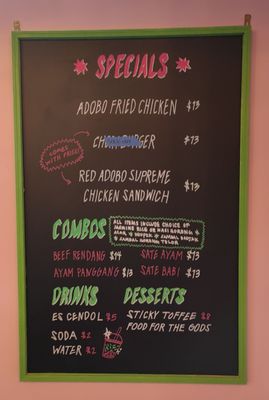 SPECIALS
ADOBO FRIED CHICKEN $13
COMES
WITH FRIES!
$13
RED ADOBO SUPREME
CHICKEN SANDWICH $13
COMBOS
ALL ITEMS INCLUDE CHOICE OF
JASMINE RICE OR NASI GORENG &
ACAR, & KRUPUK & SAMBAL
& SAMBAL GORENG TELOR
BEEF RENDANG $14 SATE AYAM $13
AYAM PANGGANG $13 SATE BABI $13
DRINKS DESSERTS
ES CENDOL $5 STICKY TOFFEE $8
FOOD FOR THE GODS
SODA $2
WATER $2